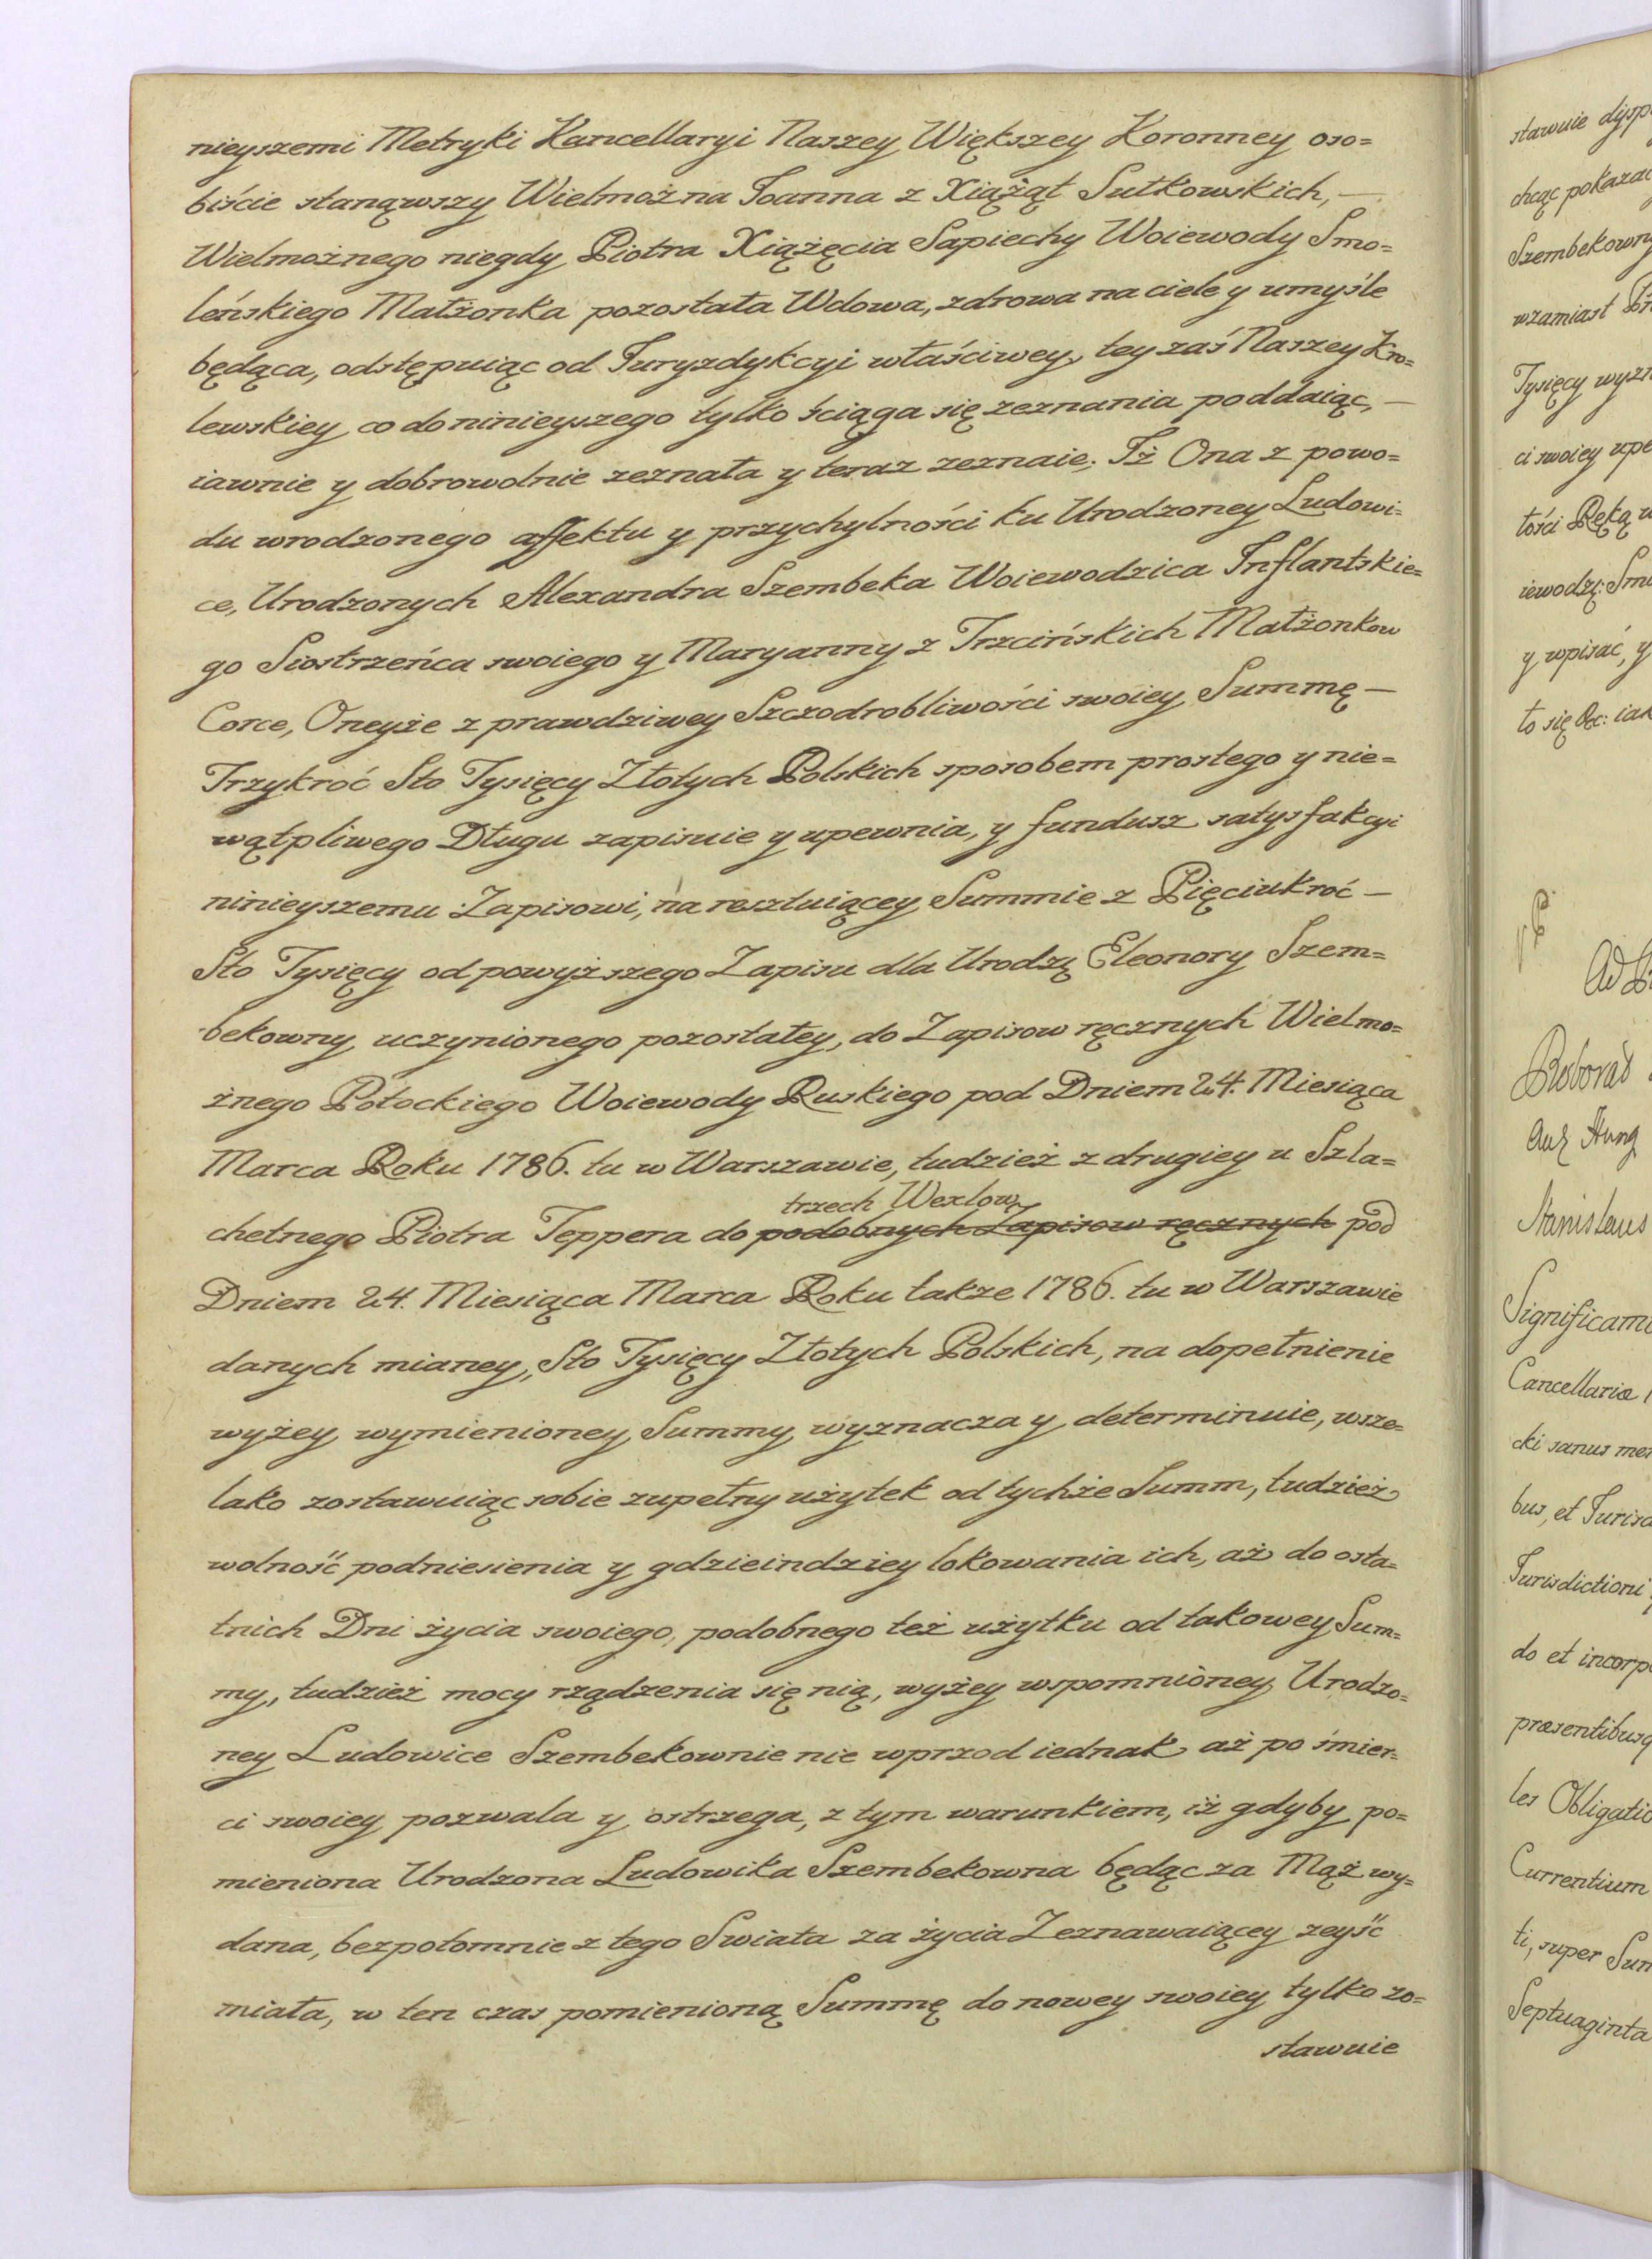 nieyszemi Metryki Kancellaryi Naszey Większey Koronney oso=
biście stanąwszy Wielmożna Joanna z Xiążąt Sułkowskich, —
Wielmożnego niegdy Piotra Xiążęcia Sapiechy Woiewody Smo=
leńskiego Małżonka pozostała Wdowa, zdrowa na ciele y umyśle
będąca, odstępuiąc od Juryzdykcyi właściwey, tey zaś Naszey Kro=
lewskiey co do ninieyszego tylko ściąga się zeznania poddaiąc, —
iawnie y dobrowolnie zeznała y teraz zeznaie. Iż Ona z powo=
du wrodzonego affektu y przychylności ku Urodzoney Ludowi=
ce, Urodzonych Alexandra Szembeka Woiewodzica Inflantskie=
go Siostrzeńca swoiego y Maryanny z Trzcińskich Małżonkow
Corce, Oneyże z prawdziwey Szczodrobliwości swoiey Summę —
Trzykroć Sto Tysięcy Złotych Polskich sposobem prostego y nie=
wątpliwego Długu zapisuie y upewnia, y fundusz satysfakcyi
ninieyszemu Zapisowi, na resztuiącey Summie z Pięciukroć —
Sto Tysięcy od powyższego Zapisu dla Urodzy Eleonory Szem=
bekowny uczynionego pozostałey, do Zapisow ręcznych Wielmo=
żnego Potockiego Woiewody Ruskiego pod Dniem 24. Miesiąca
Marca Roku 1786. tu w Warszawie, tudzież z drugiey u Szla=
trzech Wexlow
chetnego Piotra Teppera do podobnych Zapisow ręcznych pod
Dniem 24. Miesiąca Marca Roku także 1786. tu w Warszawie
danych mianey, Sto Tysięcy Złotych Polskich, na dopełnienie
wyżey wymienioney Summy wyznacza y determinuie, wsze=
lako zostawuiąc sobie zupełny użytek od tychże Summ, tudzież
wolność podniesienia y gdzieindziey lokowania ich, aż do osta=
tnich Dni życia swoiego, podobnego też użytku od takowey Sum=
my, tudzież mocy rządzenia się nią, wyżey wspomnioney Urodzo=
ney Ludowice Szembekownie nie wprzod iednak aż po śmier=
ci swoiey pozwala y ostrzega, z tym warunkiem, iż gdyby po=
mieniona Urodzona Ludowika Szembekowna będąc za Mąż wy=
dana, bezpotomnie z tego Swiata za życia Zeznawaiącey zeyść
miała, w ten czas pomienioną Summę do nowey swoiey tylko zo=
stawuie
stawuie
chcąc
Szembekowny
wzamiast
Tysięcy
ci swoiey
tości Ręką
y wpisać, y
to się &c:
Stanislaus
Cancellariæ
cki sanus
bus, et
Jurisdictioni
do et
Currentium
ti, super
Septuaginta